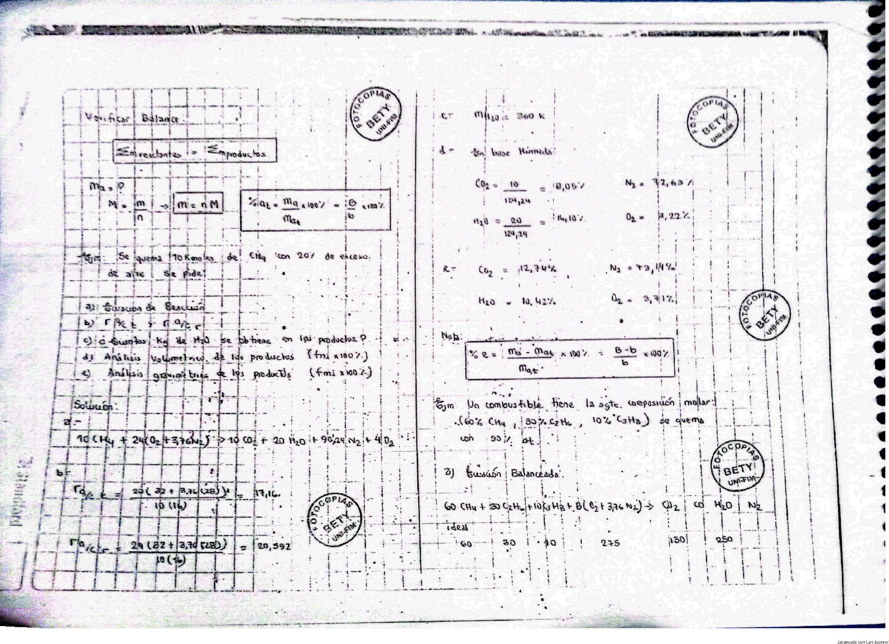 Verificar Balance:
Σm reactantes = Σm productos
ma = ?
M = m/n → m = nM
% at = ma/mat x 100% = B/b x 100%
Ejm Se quema 10 Kmoles de CH4 con 20% de exceso
de aire se pide:
a) Ecuación de Reacción
b) r a/c t y r a/c r
c) ¿ Cuantos Kg de H2O se obtiene en los productos?
d) Análisis volumetrico de los productos (fmi x100%)
e) Análisis gravimétrico de los productos (fmi x100%)
Solución:
a =
10 CH4 + 24(O2 + 3,76N2) → 10 CO2 + 20 H2O + 90,24 N2 + 4 O2
b =
r a/c t = 20(32 + 3,76(28))/10(16) = 17,16
r a/c r = 24(32 + 3,76(28))/10(16) = 20,592
c = mH2O = 360 k
d = En base Húmeda:
CO2 = 10/124,24 = 8,05% N2 = 72,63%
H2O = 20/124,24 = 16,10% O2 = 3,22%
e = CO2 = 12,74% N2 = 73,14%
H2O = 10,42% O2 = 3,71%
Nota:
% e = ma - mat/mat x 100% = B-b/b x 100%
Ejm Un combustible tiene la sgte. composición molar:
(60% CH4, 30% C2H6, 10% C3H8) se quema
con 90% at.
a) Ecuación Balanceada
60 CH4 + 30 C2H6 + 10 C3H8 + B(O2 + 3,76 N2) → CO2 CO H2O N2
ideal
60 30 10 275 150 250
FOTOCOPIAS BETY UNI-FIM
FOTOCOPIAS BETY UNI-FIM
FOTOCOPIAS BETY UNI-FIM
FOTOCOPIAS BETY UNI-FIM
FOTOCOPIAS BETY UNI-FIM